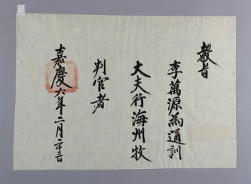 敎旨
李萬源爲通訓
大夫行海州牧
判官者
嘉慶六年二月二十二日